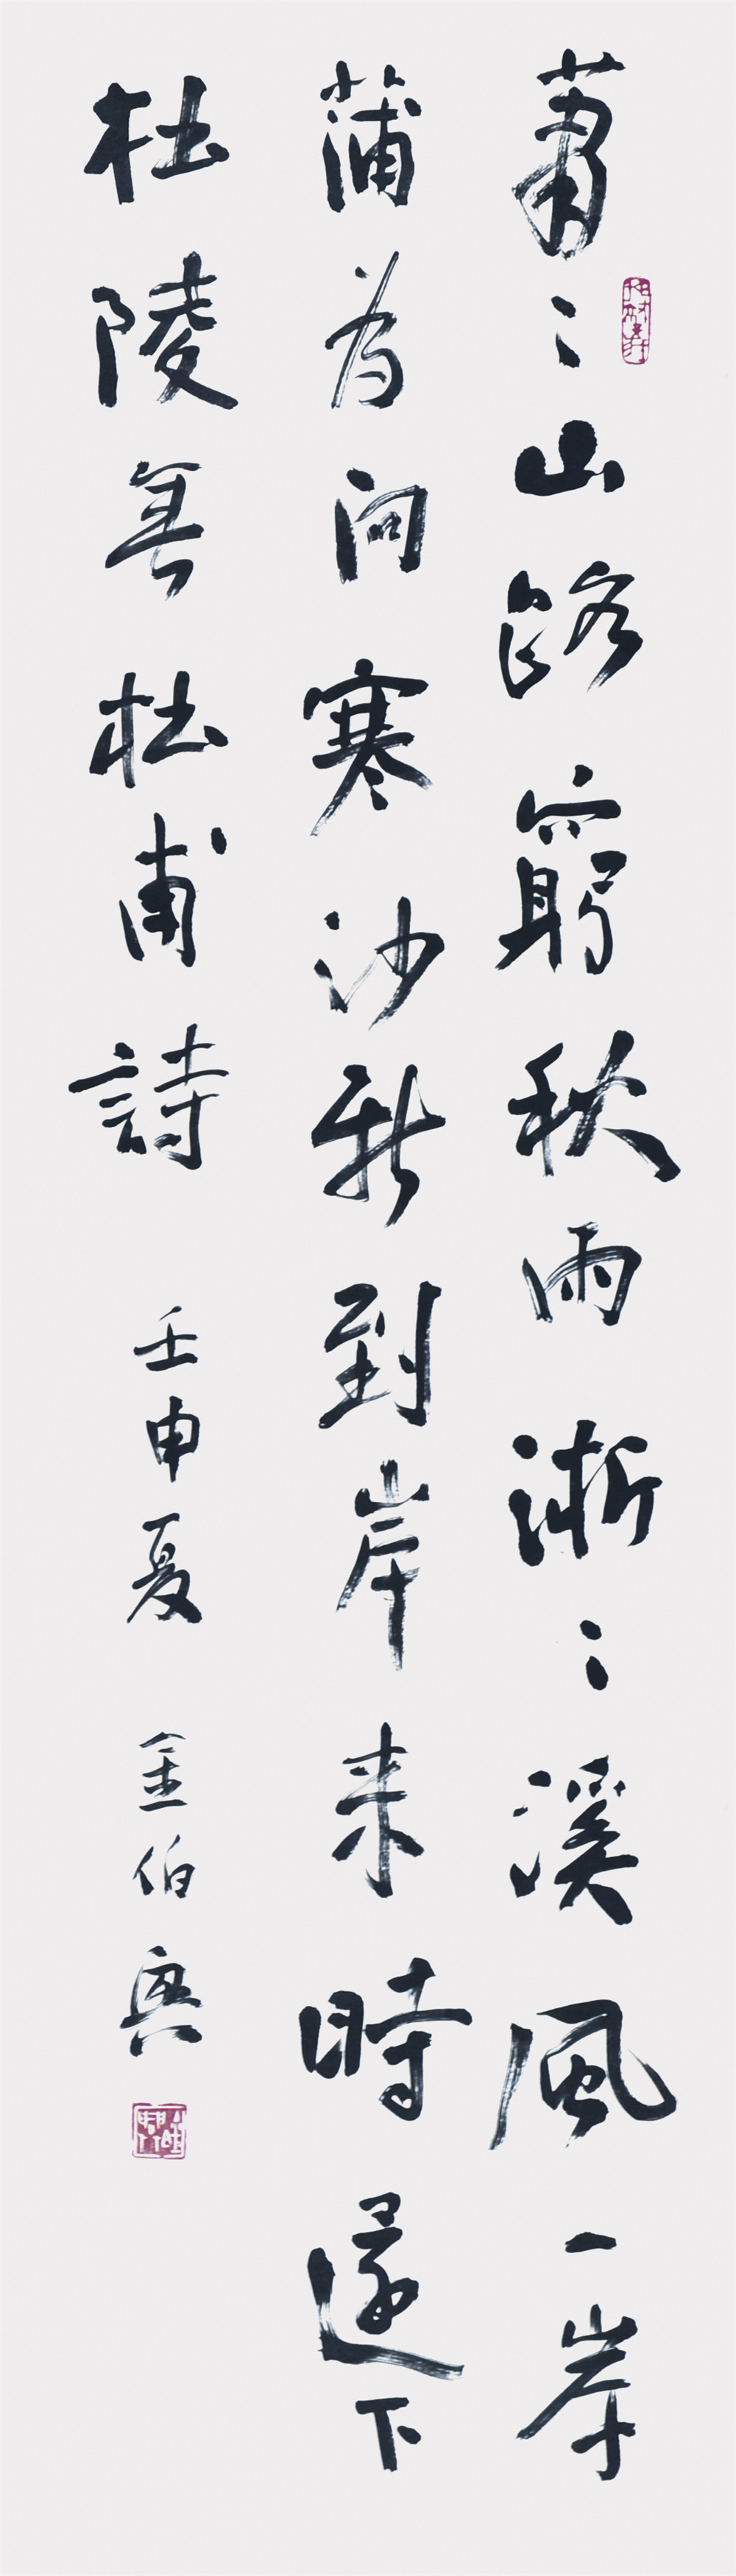 蕭〻山路窮秋雨淅〻溪風一岸
蒲为问寒沙新到岸来時還下
杜陵無 杜甫詩 壬申夏 金伯興